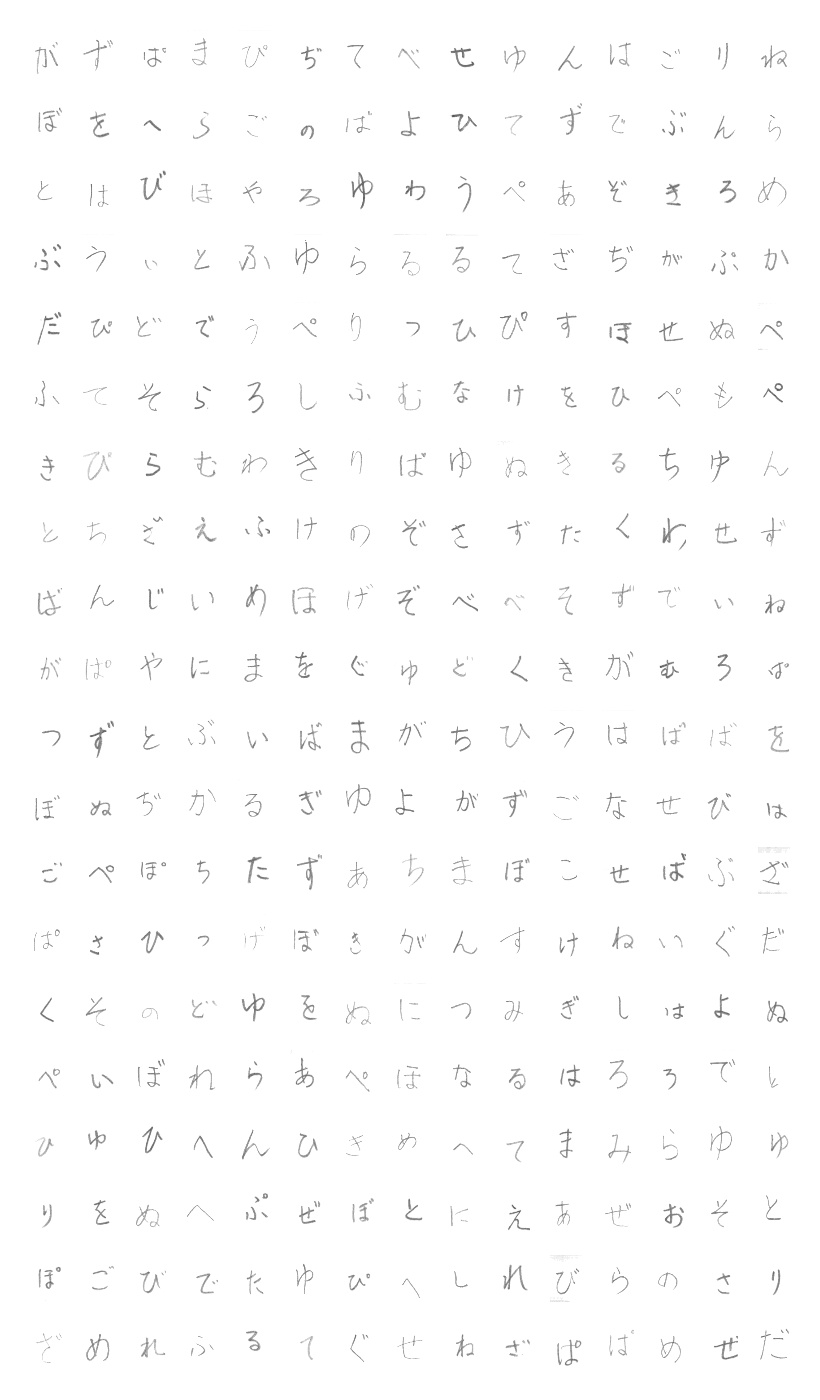 がずぱまぴぢてべせゆんはごりね
ぼをへらごのばよひてずでぶんら
とはびほやろゆわうぺあぞきろめ
ぶういとふゆらるるてざぢがぷか
だぴどでうぺりつひぴすほせぬぺ
ふてそらろしふむなけをひぺもぺ
きぴらむわきりばゆぬきるちゆん
とちざえふけのぞさずたくわせず
ばんじいめほげぞべべそずでいね
がぱやにまをぐゆどくきがむろぱ
つずとぶいばまがちひうはばばを
ぼぬぢかるぎゆよがずごなせびは
ごぺぽちたずあちまぼこせばぶざ
ぱさひつげぼきがんすけねいぐだ
くそのどゆをぬにつみぎしはよぬ
ぺいぼれらあぺほなるはろろでと
ひゆひへんひきめへてまみらゆゆ
りをぬへぷぜぼとにえあぜおそと
ぽごびでたゆぴへしれびらのさり
ざめれふるてぐせねざぱぱめぜだ